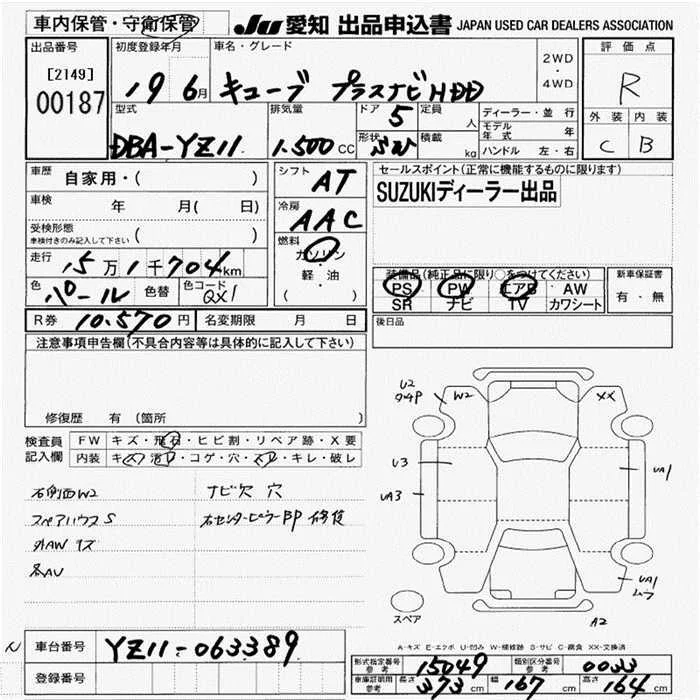 車内保管・守衛保管 JU 愛知 出品申込書 JAPAN USED CAR DEALERS ASSOCIATION
出品番号 初度登録年月 車名・グレード 2WD・4WD 評価点
[2149]
00187
19 6月 キューブ プラスナビHDD R
型式 排気量 ドア 5 定員 人 ディーラー・並行 外装 内装
DBA-YZ11 1.500 CC 形状 積載 kg モデル年式 年 C B
ハンドル 左・右
車歴 自家用・( ) シフト AT セールスポイント(正常に機能するものに限ります)
車検 年 月( 日) 冷房 AAC SUZUKIディーラー出品
受検形態 車検付きのみ記入して下さい ( ) 燃料 ガソリン・軽・油 ( )
走行 15万1千704km 装備品(純正品に限り○をつけてください) 新車保証書
色 パール 色替 色コード QX1 PS PW エアB AW 有・無
SR ナビ TV カワシート
R券 10.570円 名変期限 月 日 後日品
注意事項申告欄(不具合内容等は具体的に記入して下さい)
修復歴 有 (箇所 )
検査員記入欄 FW キズ・飛石・ヒビ割・リペア跡・X要
内装 キズ・汚レ・コゲ・穴・スレ・キレ・破レ
右側面W2 ナビ欠 穴
スペアハウスS 右センターピラーBP 修復
外AW キズ
各AU
U2
W2 XX
U3 UA1
UA3
UA1
ムラ
スペア A2
A-キズ E-エクボ U-凹み W-補修跡 S-サビ C-腐食 XX-交換済
N 車台番号 YZ11-063389
登録番号
形式指定番号 参考 15049 類別区分番号 参考 0033
車庫証明用 参考 長さ 373 cm 幅 167 cm 高さ 164 cm